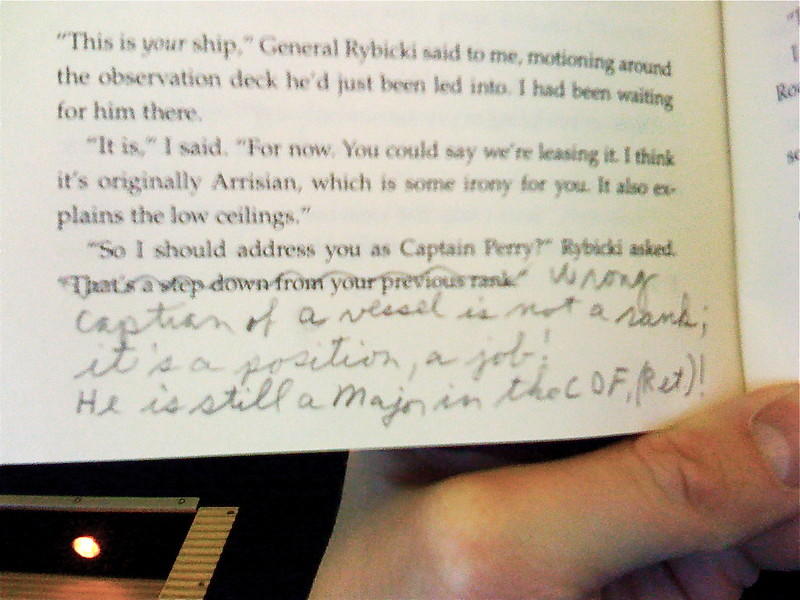 "This is your ship," General Rybicki said to me, motioning around
the observation deck he'd just been led into. I had been waiting
for him there.
"It is," I said. "For now. You could say we're leasing it. I think
it's originally Arrisian, which is some irony for you. It also ex-
plains the low ceilings."
"So I should address you as Captain Perry?" Rybicki asked.
"That's a step down from your previous rank." Wrong
captian of a vessel is not a rank;
it's a position, a job!
He is still a Major in the CDF, (Ret)!
Ro